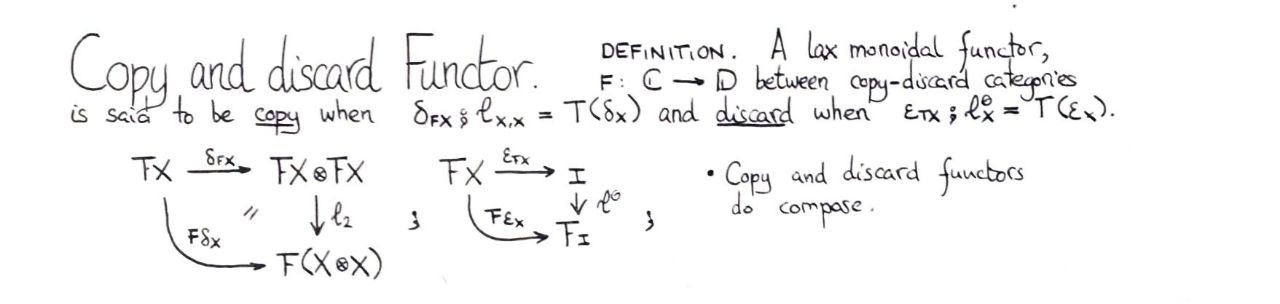 Copy and discard Functor. DEFINITION. A lax monoidal functor,
F: ℂ → 𝔻 between copy-discard categories
is said to be copy when δ_FX ; ℓ_X,X = T(δ_X) and discard when ε_TX ; ℓ°_X = T(ε_X).
FX δ_FX→ FX⊗FX
Fδ_X
〃
↓ℓ₂
F(X⊗X)
;
FX ε_FX→ I
Fε_X
↓ℓ°
F_I
;
• Copy and discard functors
do compose.